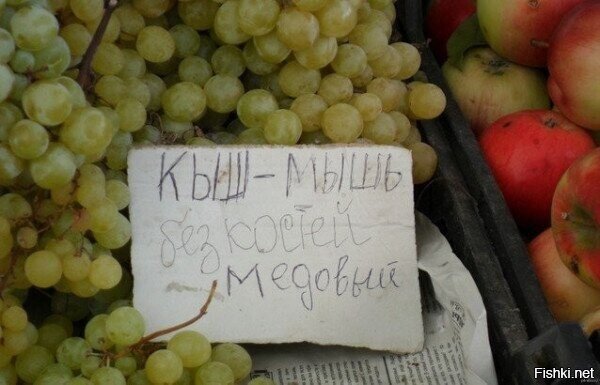 КЫШ-МЫШЬ
без костей
медовый
Fishki.net